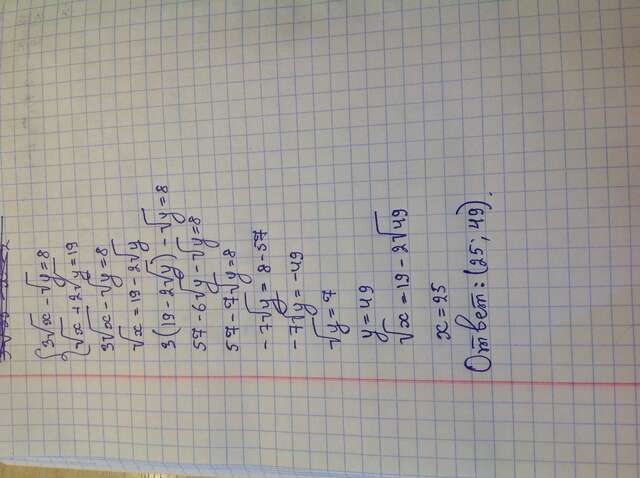 3√x − √y = 8
√x + 2√y = 19
3√x − √y = 8
√x = 19 − 2√y
3(19 − 2√y) − √y = 8
57 − 6√y − √y = 8
57 − 7√y = 8
−7√y = 8 − 57
−7√y = −49
√y = 7
y = 49
√x = 19 − 2√49
x = 25
Ответ: (25; 49).